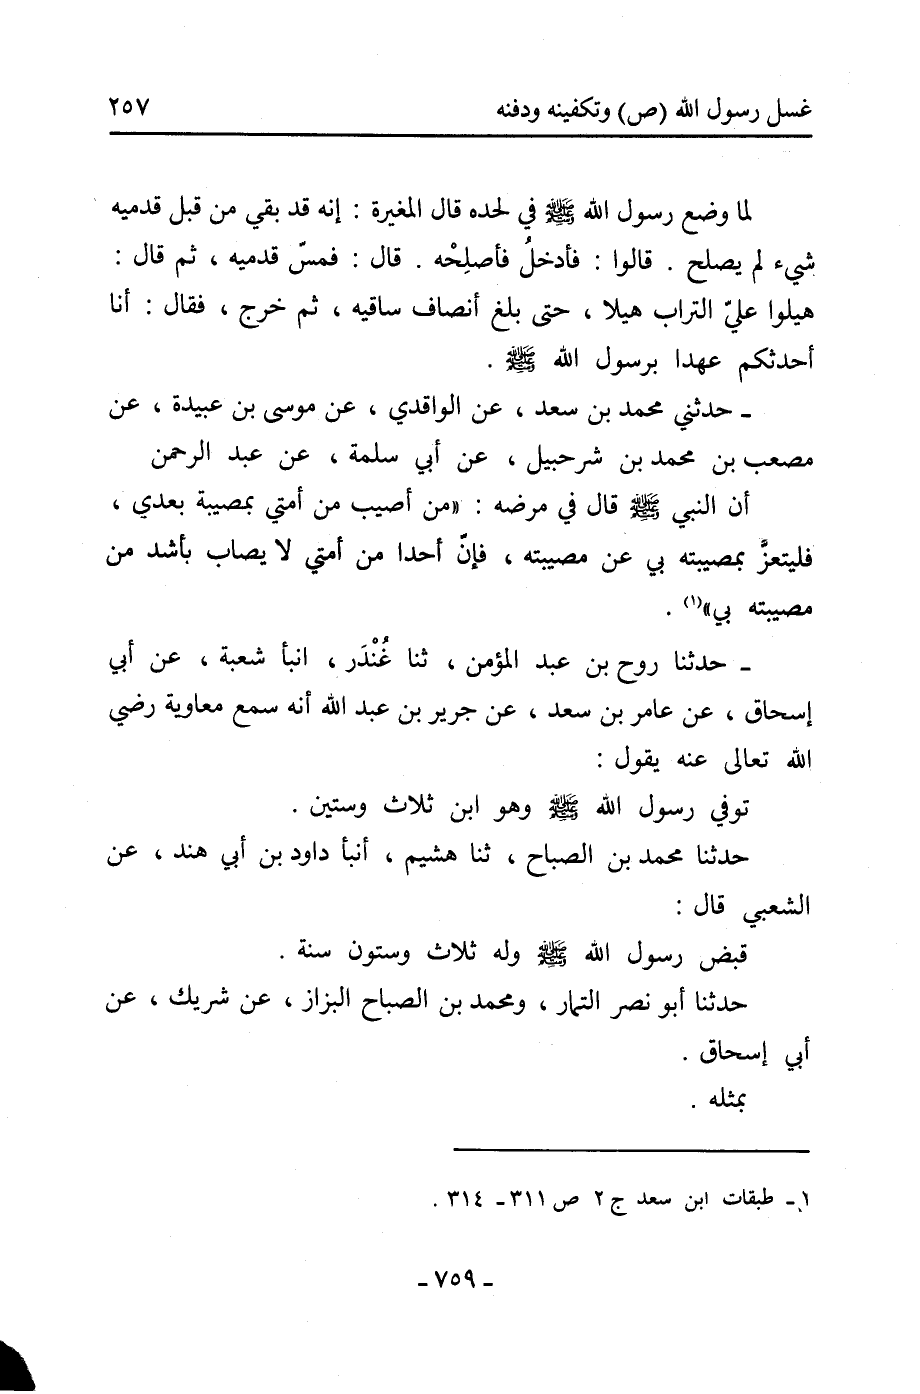 غسل رسول الله (ص) وتكفينه ودفنه ٢٥٧
لما وضع رسول الله ﷺ في لحده قال المغيرة : إنه قد بقي من قبل قدميه
شيء لم يصلح . قالوا : فأدخلُ فأصلِحْه . قال : فمسّ قدميه ، ثم قال :
هيلوا عليّ التراب هيلا ، حتى بلغ أنصاف ساقيه ، ثم خرج ، فقال : أنا
أحدثكم عهدا برسول الله ﷺ .
ـ حدثني محمد بن سعد ، عن الواقدي ، عن موسى بن عبيدة ، عن
مصعب بن محمد بن شرحبيل ، عن أبي سلمة ، عن عبد الرحمن
أن النبي ﷺ قال في مرضه : «من أصيب من أمتي بمصيبة بعدي ،
فليتعزَّ بمصيبته بي عن مصيبته ، فإنّ أحدا من أمتي لا يصاب بأشد من
مصيبته بي»(١) .
ـ حدثنا روح بن عبد المؤمن ، ثنا غُنْدَر ، انبأ شعبة ، عن أبي
إسحاق ، عن عامر بن سعد ، عن جرير بن عبد الله أنه سمع معاوية رضي
الله تعالى عنه يقول :
توفي رسول الله ﷺ وهو ابن ثلاث وستين .
حدثنا محمد بن الصباح ، ثنا هشيم ، أنبأ داود بن أبي هند ، عن
الشعبي قال :
قبض رسول الله ﷺ وله ثلاث وستون سنة .
حدثنا أبو نصر التمار ، ومحمد بن الصباح البزاز ، عن شريك ، عن
أبي إسحاق .
بمثله .
١ـ طبقات ابن سعد ج ٢ ص ٣١١ ـ ٣١٤ .
ـ ٧٥٩ ـ